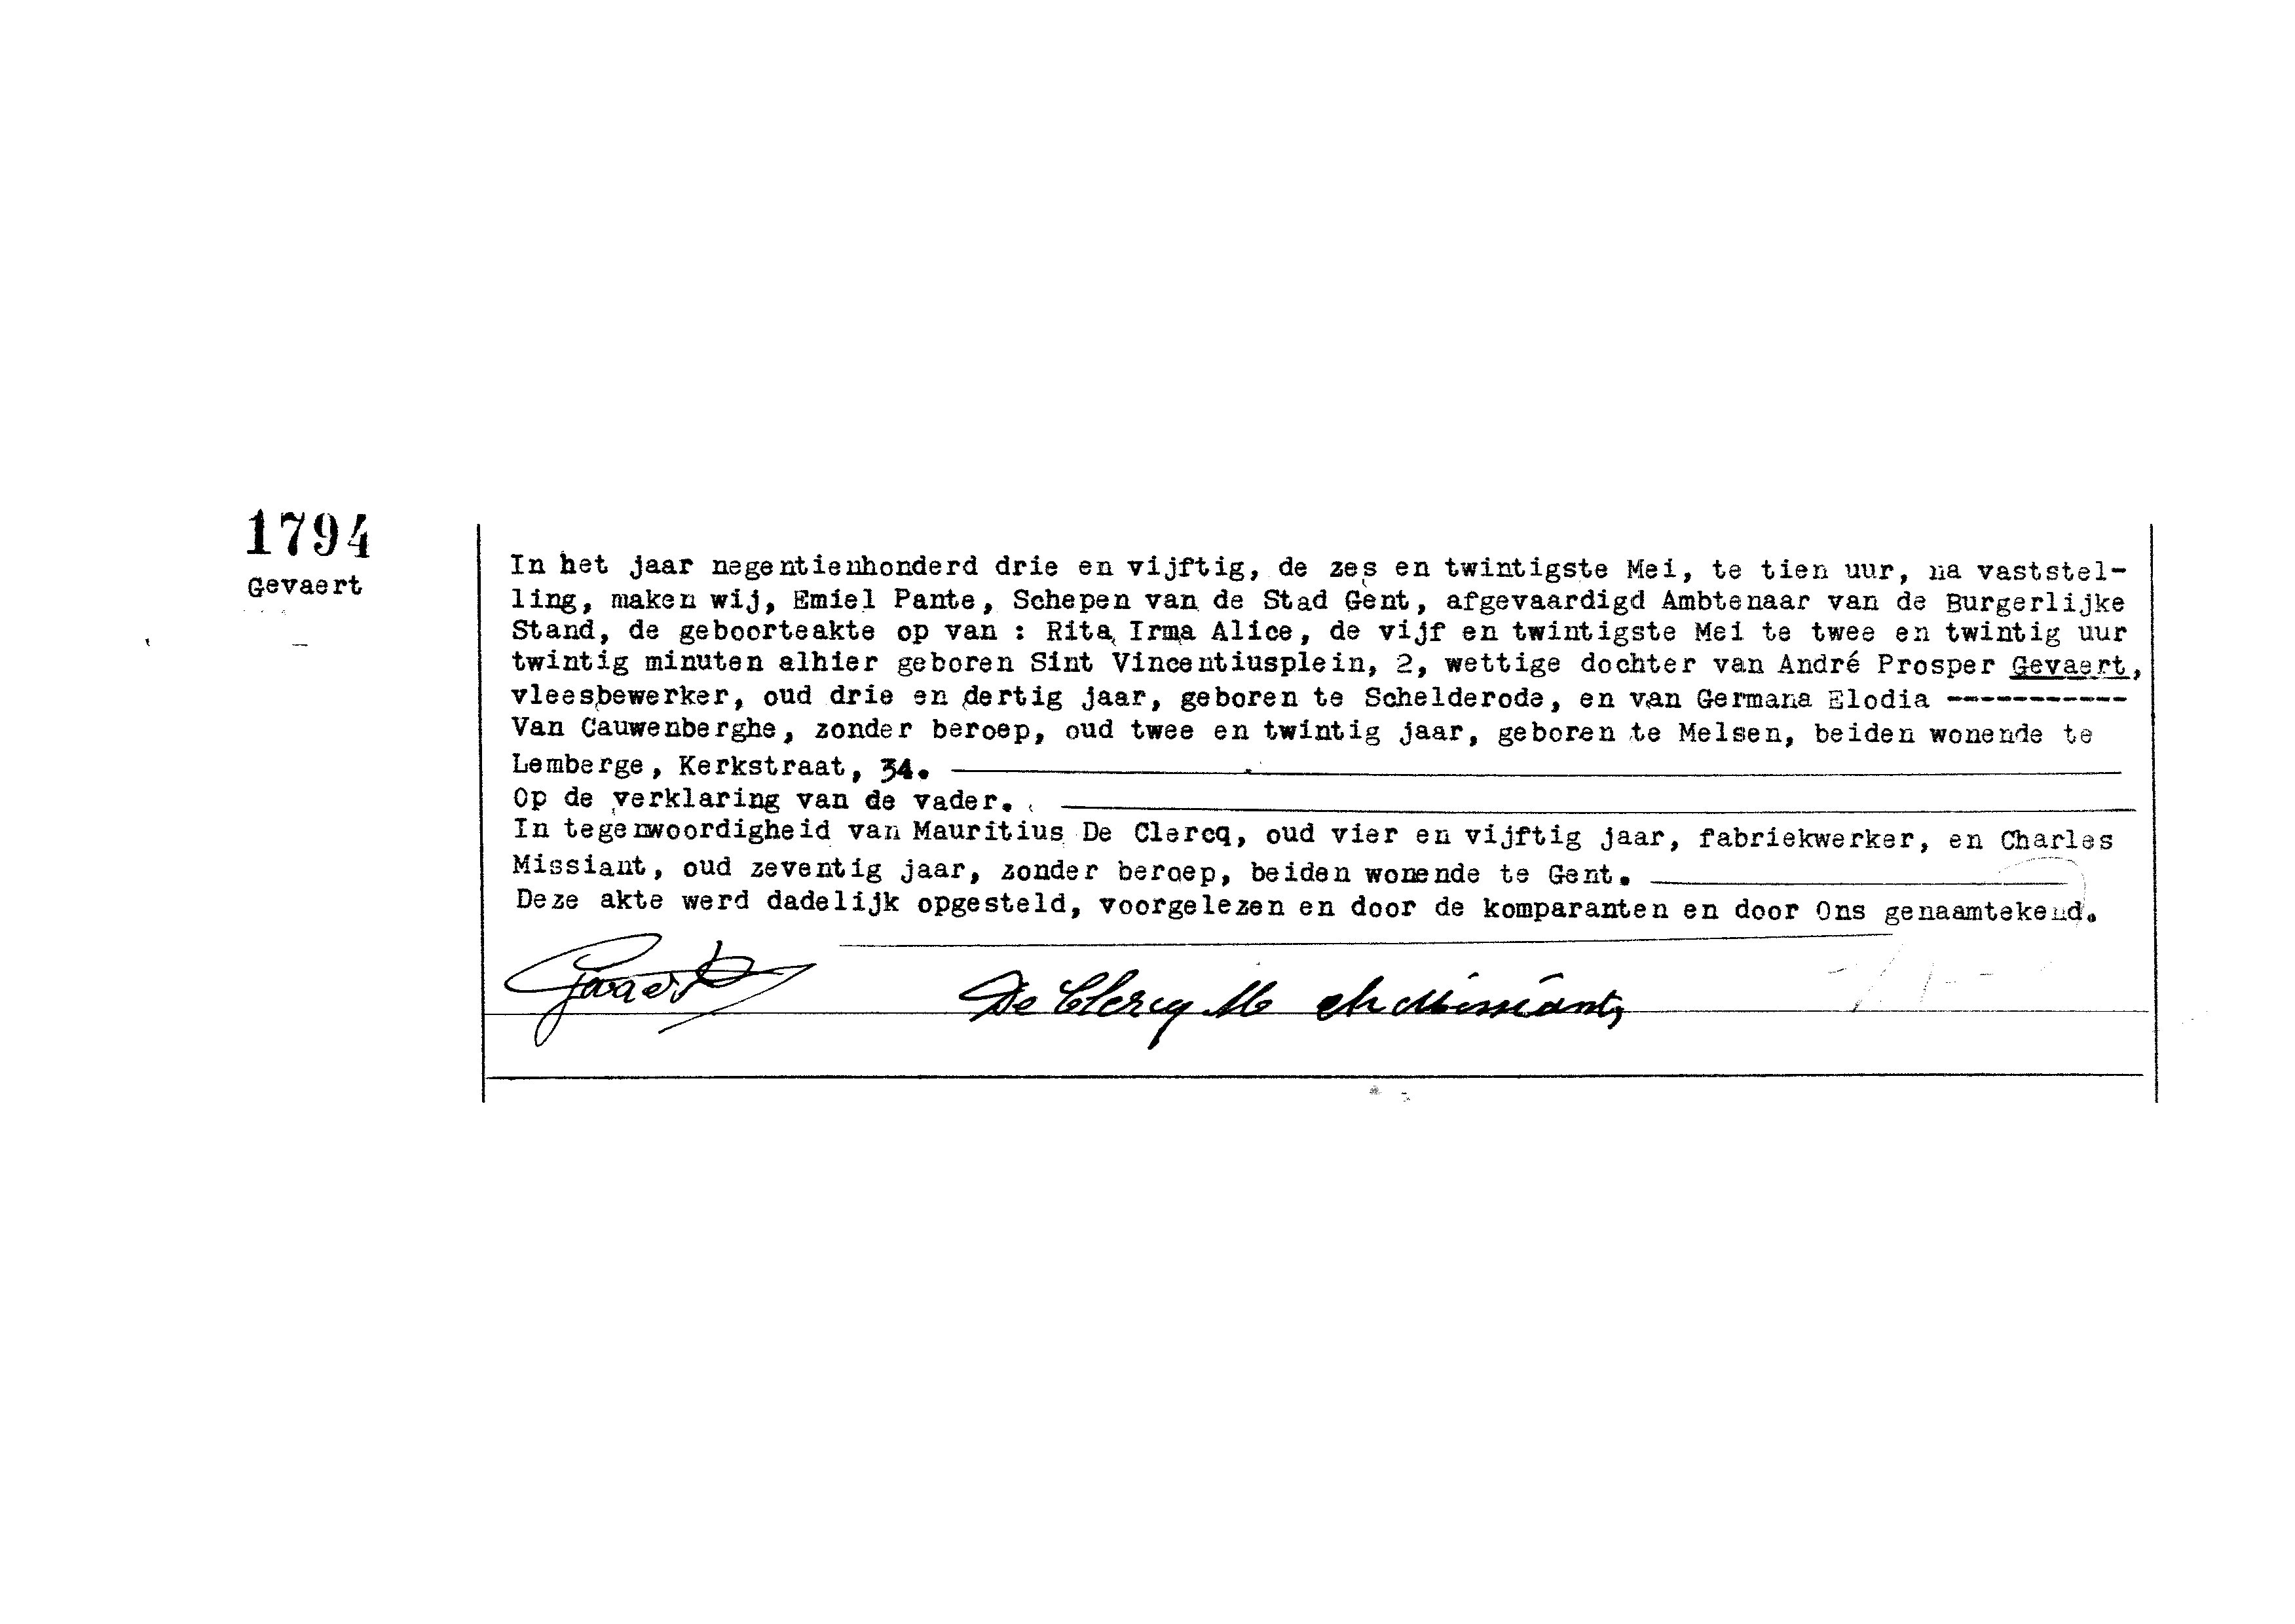 1794
Gevaert
In het jaar negentienhonderd drie en vijftig, de zes en twintigste Mei, te tien uur, na vaststel-
ling, maken wij, Emiel Pante, Schepen van de Stad Gent, afgevaardigd Ambtenaar van de Burgerlijke
Stand, de geboorteakte op van : Rita Irma Alice, de vijf en twintigste Mei te twee en twintig uur
twintig minuten alhier geboren Sint Vincentiusplein, 2, wettige dochter van André Prosper Gevaert,
vleesbewerker, oud drie en dertig jaar, geboren te Schelderode, en van Germana Elodia -----------
Van Cauwenberghe, zonder beroep, oud twee en twintig jaar, geboren te Melsen, beiden wonende te
Lemberge, Kerkstraat, 34.
Op de verklaring van de vader.
In tegenwoordigheid van Mauritius De Clercq, oud vier en vijftig jaar, fabriekwerker, en Charles
Missiant, oud zeventig jaar, zonder beroep, beiden wonende te Gent.
Deze akte werd dadelijk opgesteld, voorgelezen en door de komparanten en door Ons genaamtekend.
Gevaert De Clercq M ch Missiant